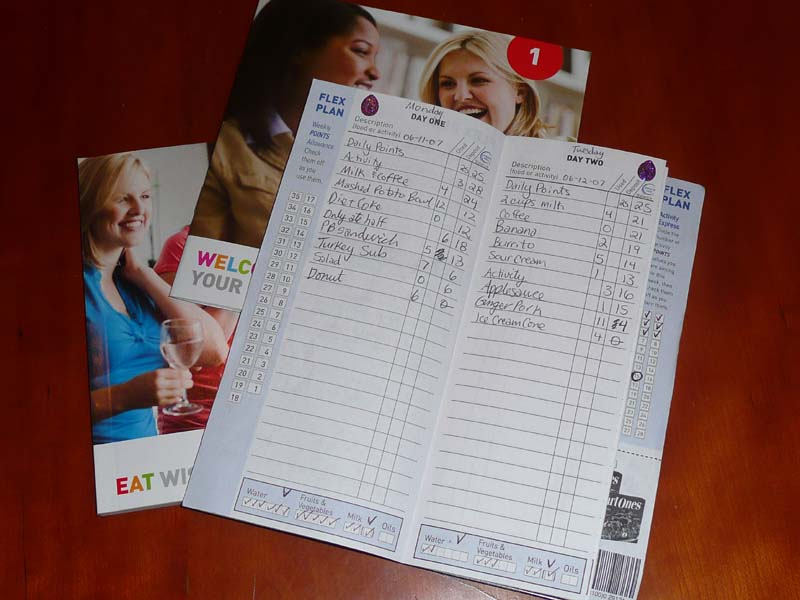 1
WELCO
YOUR
EAT WIS
FLEX
PLAN
Weekly
POINTS
Allowance
Check
them off
as you
use them.
35 17
34 16
33 15
32 14
31 13
30 12
29 11
28 10
27 9
26 8
25 7
24 6
23 5
22 4
21 3
20 2
19 1
18
Monday
DAY ONE
Description
(food or activity) 06-11-07
Daily Points 25 25
Activity 3 28
Milk & Coffee 4 24
Mashed Potato Bowl 12 12
Diet Coke 0 12
Only ate half 6 18
PB Sandwich 5 13
Turkey Sub 7 6
Salad 0 6
Donut 6 0
Water
Fruits &
Vegetables
Milk
Oils
Tuesday
DAY TWO
Description
(food or activity) 06-12-07
Daily Points 25 25
2 cups milk 4 21
Coffee 0 21
Banana 2 19
Burrito 5 14
Sour Cream 1 13
Activity 3 16
Applesauce 15
Genger Pork 11 4
Ice Cream Cone 4 0
Water
Fruits &
Vegetables
Milk
Oils
FLEX
PLAN
Activity
Express
POINTS